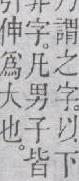 乃謂之字。以下
非字。凡男子皆
伸爲大也。